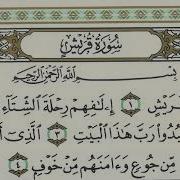 سُورَةُ قُرَيْشٍ
بِسْمِ اللَّهِ الرَّحْمَٰنِ الرَّحِيمِ
يْشٍ ١ إِۦلَٰفِهِمْ رِحْلَةَ الشِّتَآءِ
بُدُوا۟ رَبَّ هَٰذَا الْبَيْتِ ٣ الَّذِىٓ أَ
مِّن جُوعٍ وَءَامَنَهُم مِّنْ خَوْفٍ ٤